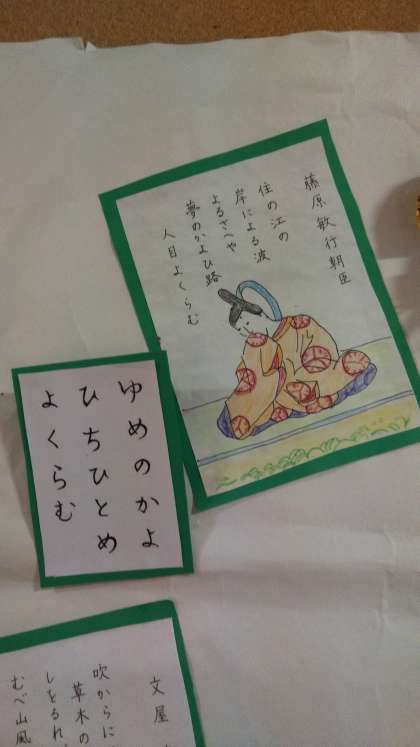 藤原敏行朝臣
住の江の
岸による波
よるさへや
夢のかよひ路
人目よくらむ
ゆめのかよ
ひちひとめ
よくらむ
文屋
吹からに
草木の
しをるれ
むべ山風